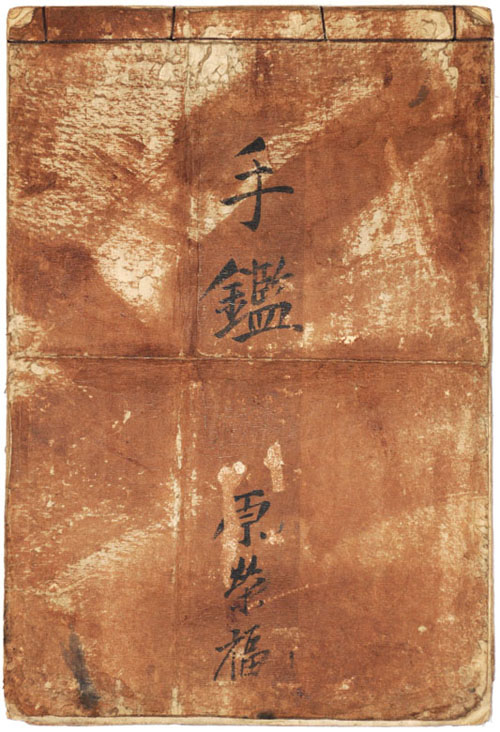 手鑑
原榮福